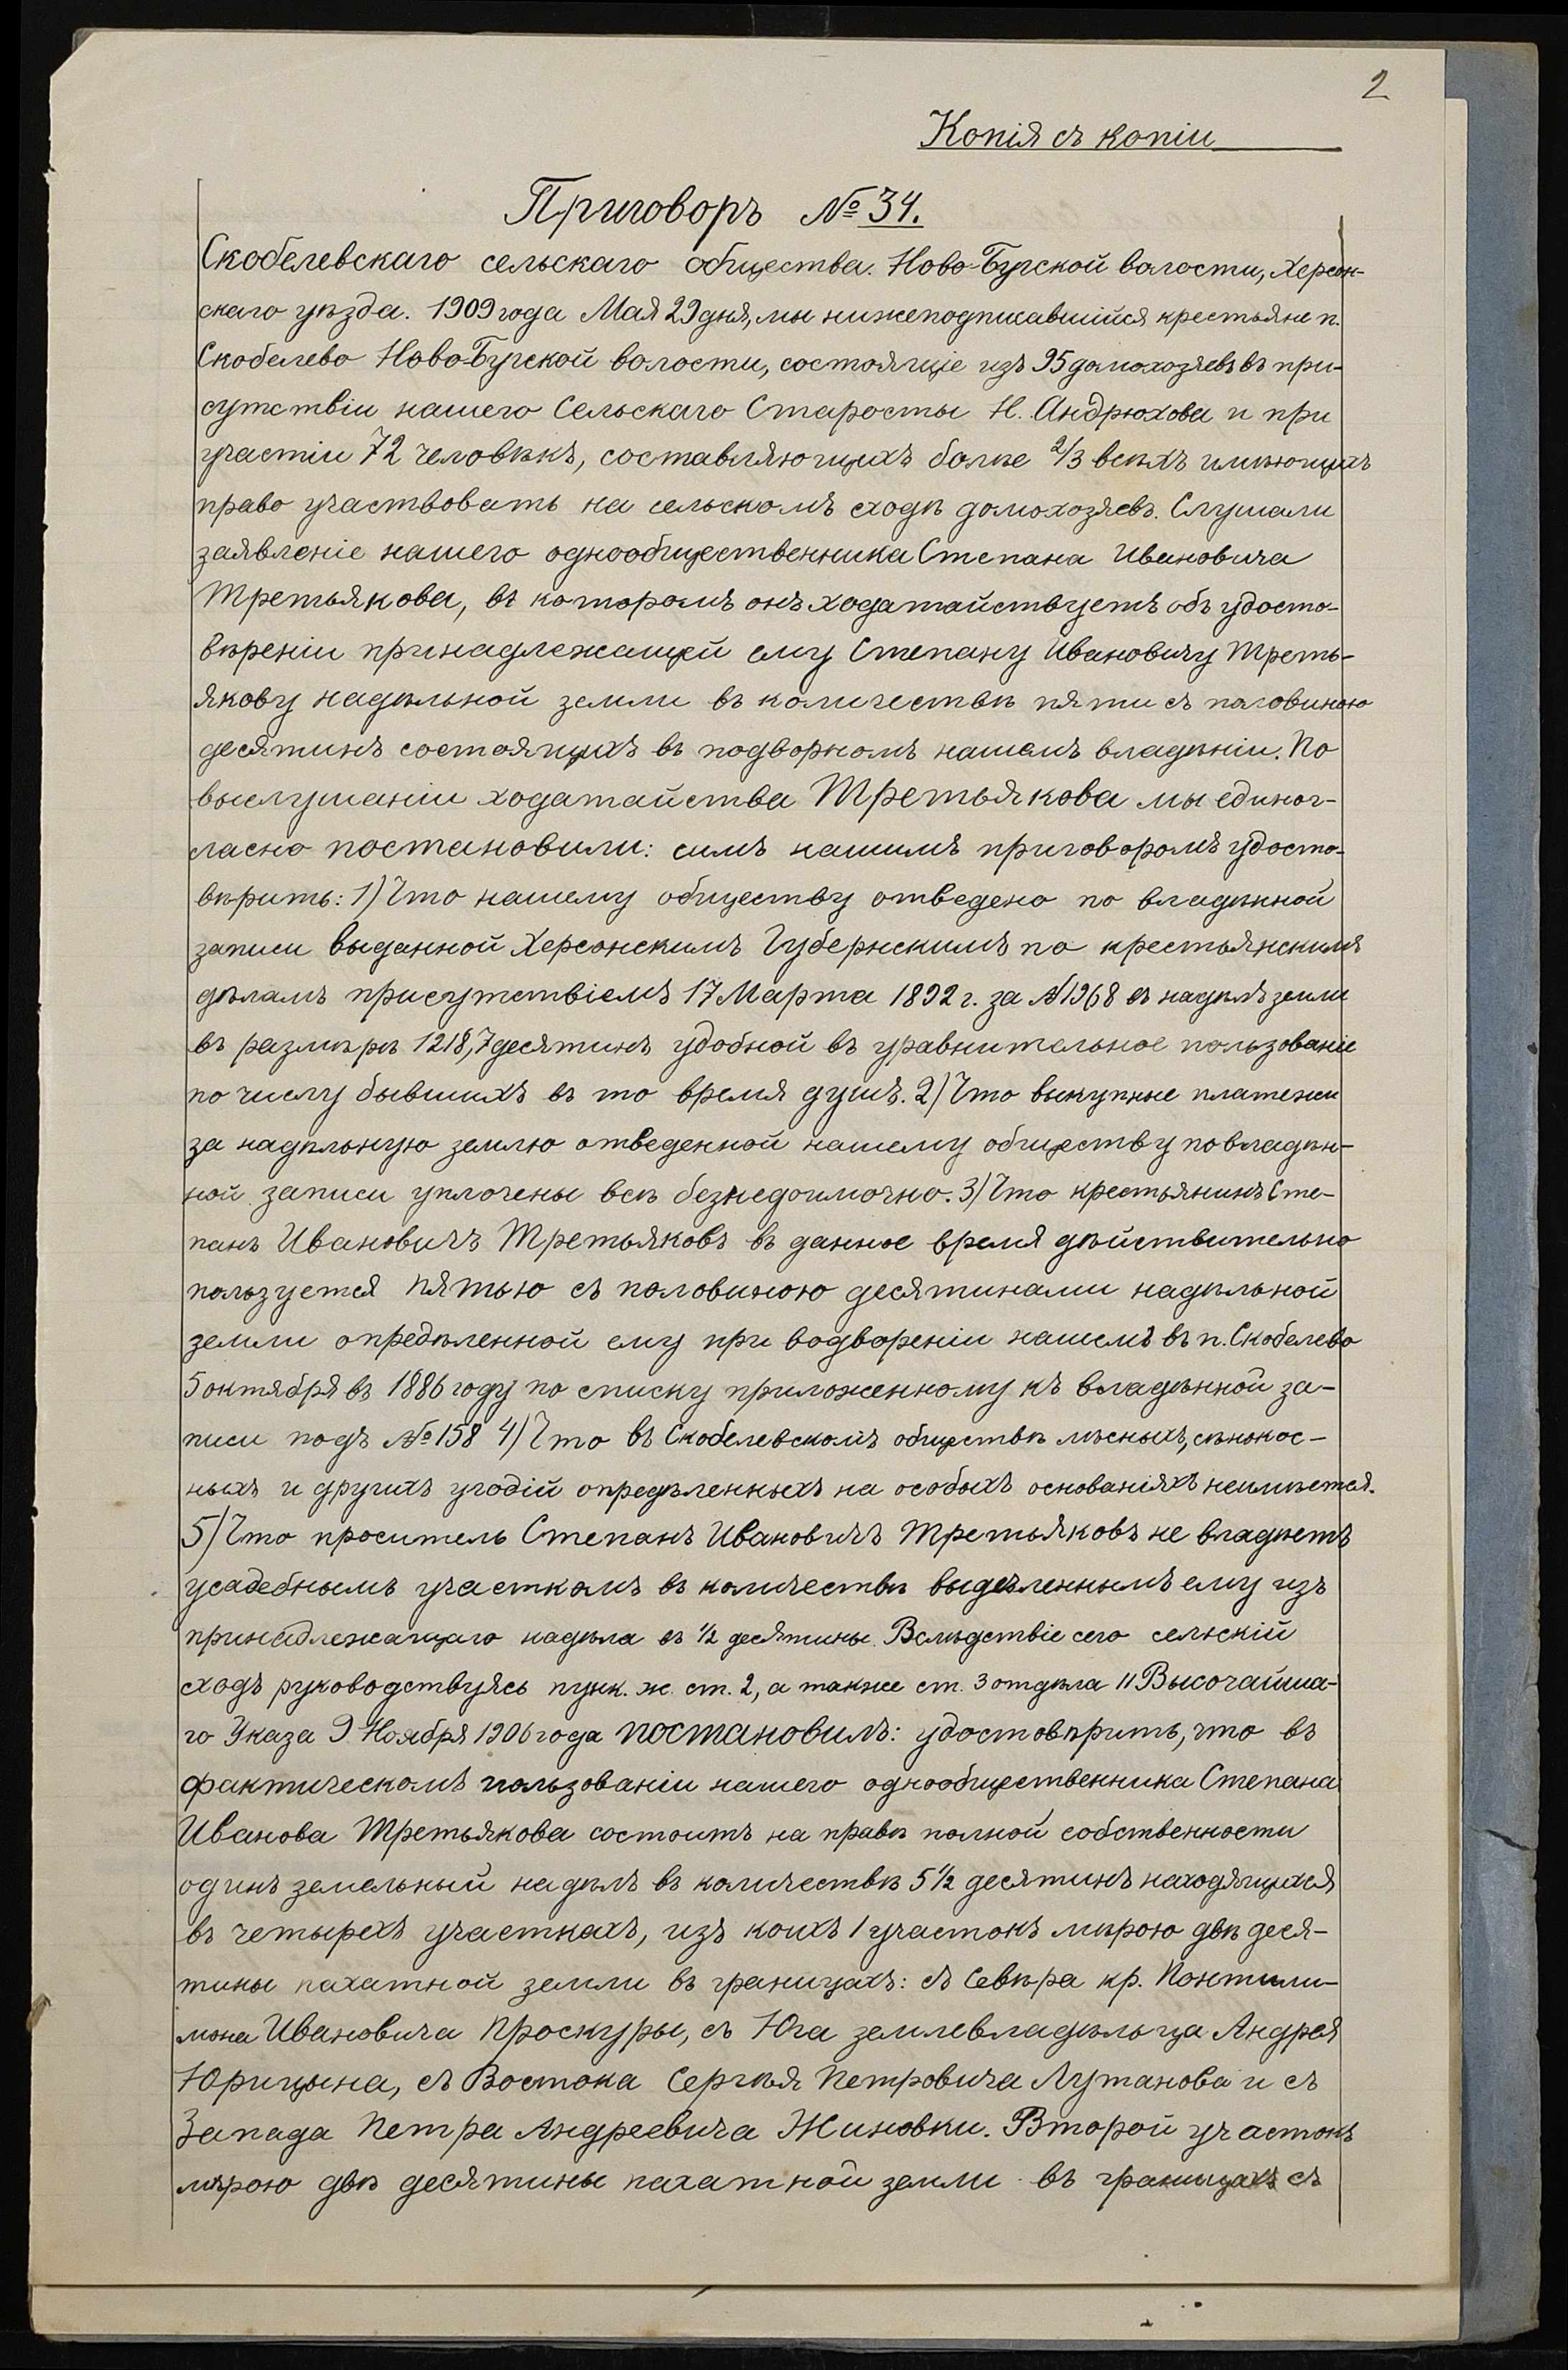 2
Копія съ копіи
Приговоръ № 34.
Скобелевскаго сельскаго общества. Ново-Бугской волости, Херсон-
скаго уѣзда. 1909 года Мая 29 дня, мы нижеподписавшійся крестьяне п.
Скобелево Ново-Бугской волости, состоящіе изъ 95 домохозяевъ въ при-
сутствіи нашего Сельскаго Старосты Н. Андрюхова и при
участіи 72 человѣкъ, составляющихъ болѣе 2/3 всѣхъ имѣющихъ
право участвовать на сельскомъ сходѣ домохозяевъ. Слушали
заявленіе нашего однообщественника Степана Ивановича
Третьякова, въ которомъ онъ ходатайствуетъ объ удосто-
вѣреніи принадлежащей ему Степану Ивановичу Треть-
якову надѣльной земли въ количествѣ пяти съ половиною
десятинъ состоящихъ въ подворномъ нашемъ владѣніи. По
выслушаніи ходатайства Третьякова мы единог-
ласно постановили: симъ нашимъ приговоромъ удосто-
вѣрить: 1) Что нашему обществу отведено по владѣнной
записи выданной Херсонскимъ Губернскимъ по крестьянскимъ
дѣламъ присутствіемъ 17 Марта 1892 г. за №1968 въ надѣлъ земли
въ размѣрѣ 1218,7 десятинъ удобной въ уравнительное пользованіе
по числу бывшихъ въ то время душъ. 2) Что выкупные платежи
за надѣльную землю отведенной нашему обществу по владѣн-
ной записи уплочены всѣ безнедоимочно. 3) Что крестьянинъ Сте-
панъ Ивановичъ Третьяковъ въ данное время дѣйствительно
пользуется пятью съ половиною десятинами надѣльной
земли опредѣленной ему при водвореніи нашемъ въ п. Скобелево
5 октября въ 1886 году по списку приложенному къ владѣнной за-
писи подъ № 158 4) Что въ Скобелевскомъ обществѣ лѣсныхъ, сѣнокос-
ныхъ и другихъ угодій опредѣленныхъ на особыхъ основаніяхъ неимѣется.
5) Что проситель Степанъ Ивановичъ Третьяковъ не владѣетъ
усадебнымъ участкомъ въ количествѣ выдѣленнымъ ему изъ
принадлежащаго надѣла въ 1/2 десятины. Вслѣдствіе сего сельскій
сходъ руководствуясь пунк. ж. ст. 2, а также ст. 3 отдѣла 11 Высочайша-
го Указа 9 Ноября 1906 года постановилъ: удостовѣрить, что въ
фактическомъ пользованіи нашего однообщественника Степана
Иванова Третьякова состоитъ на правѣ полной собственности
одинъ земельный надѣлъ въ количествѣ 5 1/2 десятинъ находящихся
въ четырехъ участкахъ, изъ коихъ 1 участокъ мѣрою двѣ деся-
тины пахатной земли въ границахъ: съ Севѣра кр. Понтили-
мона Ивановича Проскуры, съ Юга землевладѣльца Андрея
Юрицына, съ Востока Сергѣя Петровича Лутанова и съ
Запада Петра Андреевича Жиновки. Второй участокъ
мѣрою двѣ десятины пахатной земли въ границахъ съ